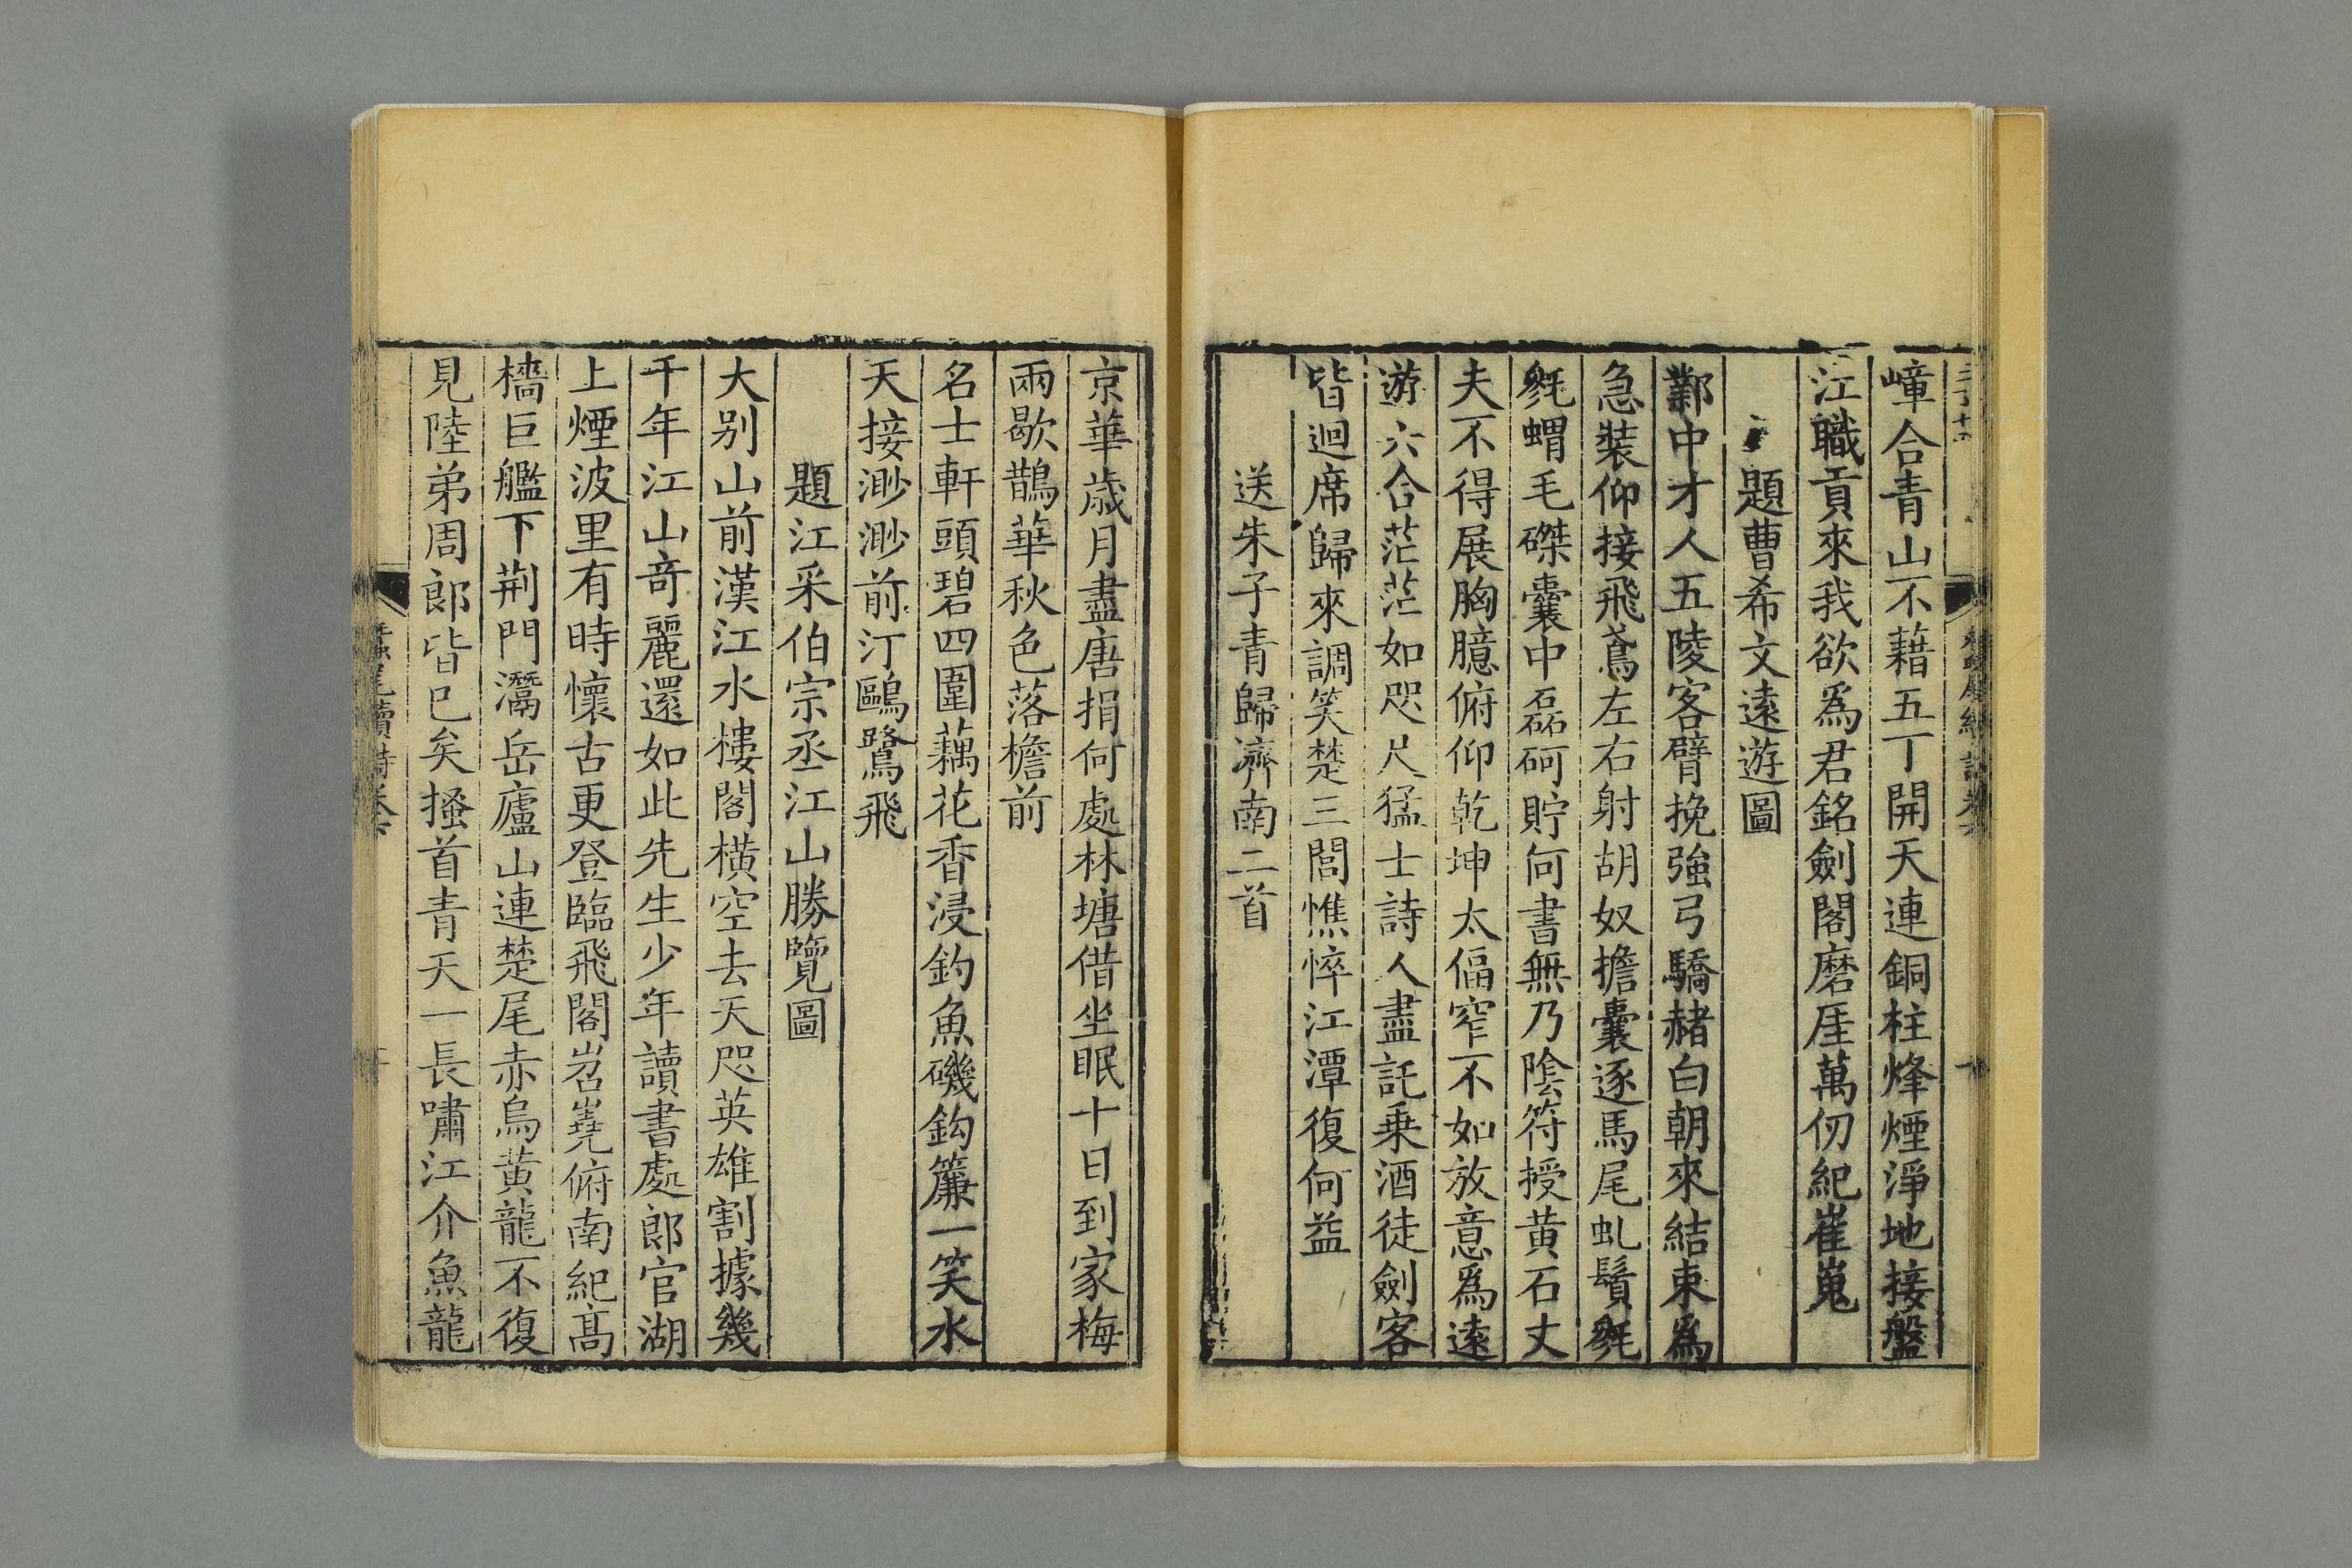 嶂合青山不藉五丁開天連銅柱烽煙淨地接盤
江職貢來我欲爲君銘劍閣磨厓萬仞紀崔嵬
題曹希文遠遊圖
鄴中才人五陵客臂挽強弓驕赭白朝來結束爲
急裝仰接飛鳶左右射胡奴擔囊逐馬尾虬鬚毿
毿蝟毛磔囊中磊砢貯何書無乃陰符授黃石丈
夫不得展胸臆俯仰乾坤太偪窄不如放意爲遠
遊六合茫茫如咫尺猛士詩人盡託乗酒徒劍客
皆迴席歸來調笑楚三閭憔悴江潭復何益
送朱子青歸濟南二首
京華歳月盡唐捐何處林塘借坐眠十日到家梅
兩歇鵲華秋色落檐前
名士軒頭碧四圍藕花香浸釣魚磯鈎簾一笑水
天接渺渺前汀鷗鷺飛
題江采伯宗丞江山勝覽圖
大别山前漢江水樓閣橫空去天咫英雄割據幾
千年江山竒麗還如此先生少年讀書處郎官湖
上煙波里有時懷古更登臨飛閣岧嶤俯南紀高
檣巨艦下荆門灊岳廬山連楚尾赤烏黃龍不復
見陸弟周郎皆已矣搔首青天一長嘯江介魚龍
蠶尾續詩卷六